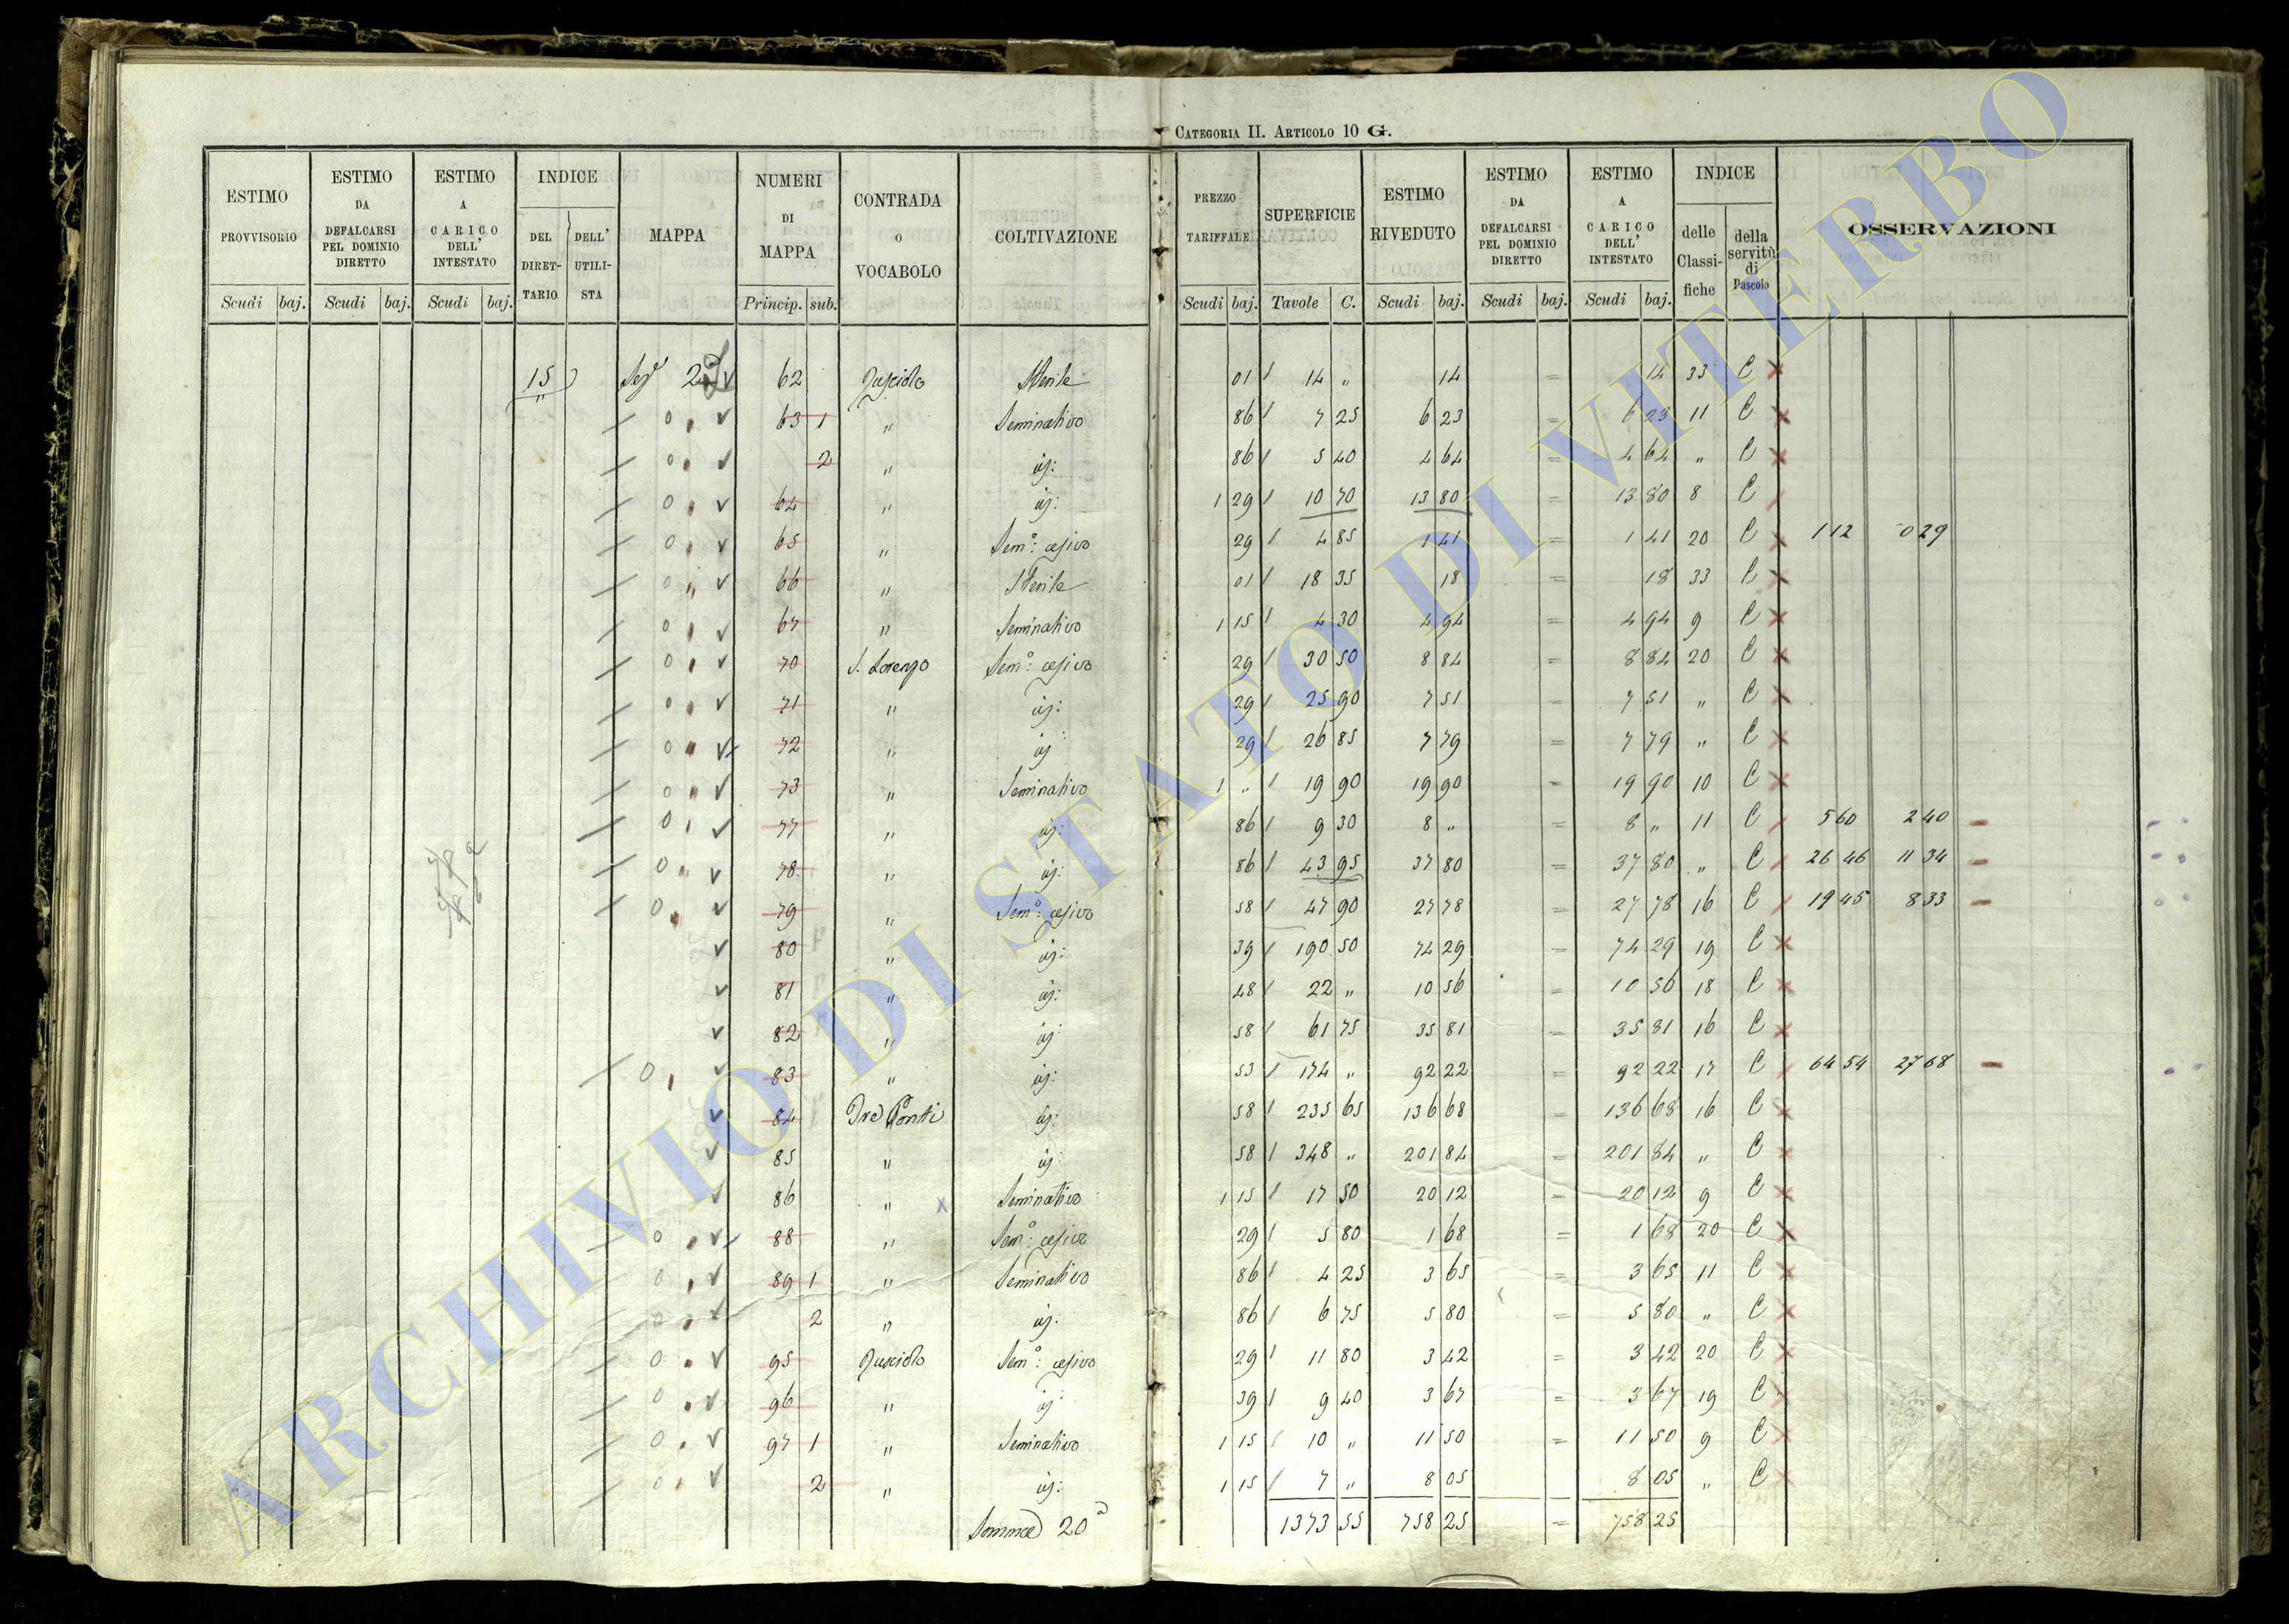 CATEGORIA II. ARTICOLO 10 G.
ESTIMO PROVVISORIO | ESTIMO DA DEFALCARSI PEL DOMINIO DIRETTO | ESTIMO A CARICO DELL' INTESTATO | INDICE DEL DIRET-TARIO | DELL' UTILI-STA | MAPPA | NUMERI DI MAPPA | CONTRADA O VOCABOLO | COLTIVAZIONE | PREZZO TARIFFALE | SUPERFICIE | ESTIMO RIVEDUTO | ESTIMO DA DEFALCARSI PEL DOMINIO DIRETTO | ESTIMO A CARICO DELL' INTESTATO | INDICE delle Classi-fiche | della servitù di Pascolo | OSSERVAZIONI
Scudi baj. | Scudi baj. | Scudi baj. | Princip. sub. | Scudi baj. | Tavole C. | Scudi baj. | Scudi baj. | Scudi baj.
15 Sez 2 62 Sterile 01 14 " 14 = 14 33 C
63 1 " Seminativo 86 7 25 6 23 = 6 23 11 C
2 " id: 86 5 40 4 64 = 4 64 " C
64 " id: 1 29 10 70 13 80 = 13 80 8 C
65 " Sem°: cesivo 29 4 85 1 41 = 1 41 20 C 1 12 0 29
66 " Sterile 01 18 35 18 = 18 33 C
67 " Seminativo 1 15 4 30 4 94 = 4 94 9 C
70 S. Lorenzo Sem°: cesivo 29 30 50 8 84 = 8 84 20 C
71 " id: 29 25 90 7 51 = 7 51 " C
72 " id 29 26 85 7 79 = 7 79 " C
73 " Seminativo 1 " 19 90 19 90 = 19 90 10 C
77 " id: 86 9 30 8 " = 8 " 11 C 5 60 2 40
78 " id: 86 43 95 37 80 = 37 80 " C 26 46 11 34
79 " Sem°: cesivo 58 47 90 27 78 = 27 78 16 C 19 45 8 33
80 " id: 39 190 50 74 29 = 74 29 19 C
81 " id: 48 22 " 10 56 = 10 56 18 C
82 " id 58 61 75 35 81 = 35 81 16 C
83 " id: 53 174 " 92 22 = 92 22 17 C 64 54 27 68
84 Tre Ponti id: 58 235 65 136 68 = 136 68 16 C
85 " id: 58 348 " 201 84 = 201 84 " C
86 " Seminativo 1 15 17 50 20 12 = 20 12 9 C
88 " Sem°: cesivo 29 5 80 1 68 = 1 68 20 C
89 1 " Seminativo 86 4 25 3 65 = 3 65 11 C
2 " id: 86 6 75 5 80 = 5 80 " C
95 Sem°: cesivo 29 11 80 3 42 = 3 42 20 C
96 " id 39 9 40 3 67 = 3 67 19 C
97 1 " Seminativo 1 15 10 " 11 50 = 11 50 9 C
2 " id: 1 15 7 " 8 05 = 8 05 " C
Somma 20a 1373 55 758 25 = 758 25
ARCHIVIO DI STATO DI VITERBO